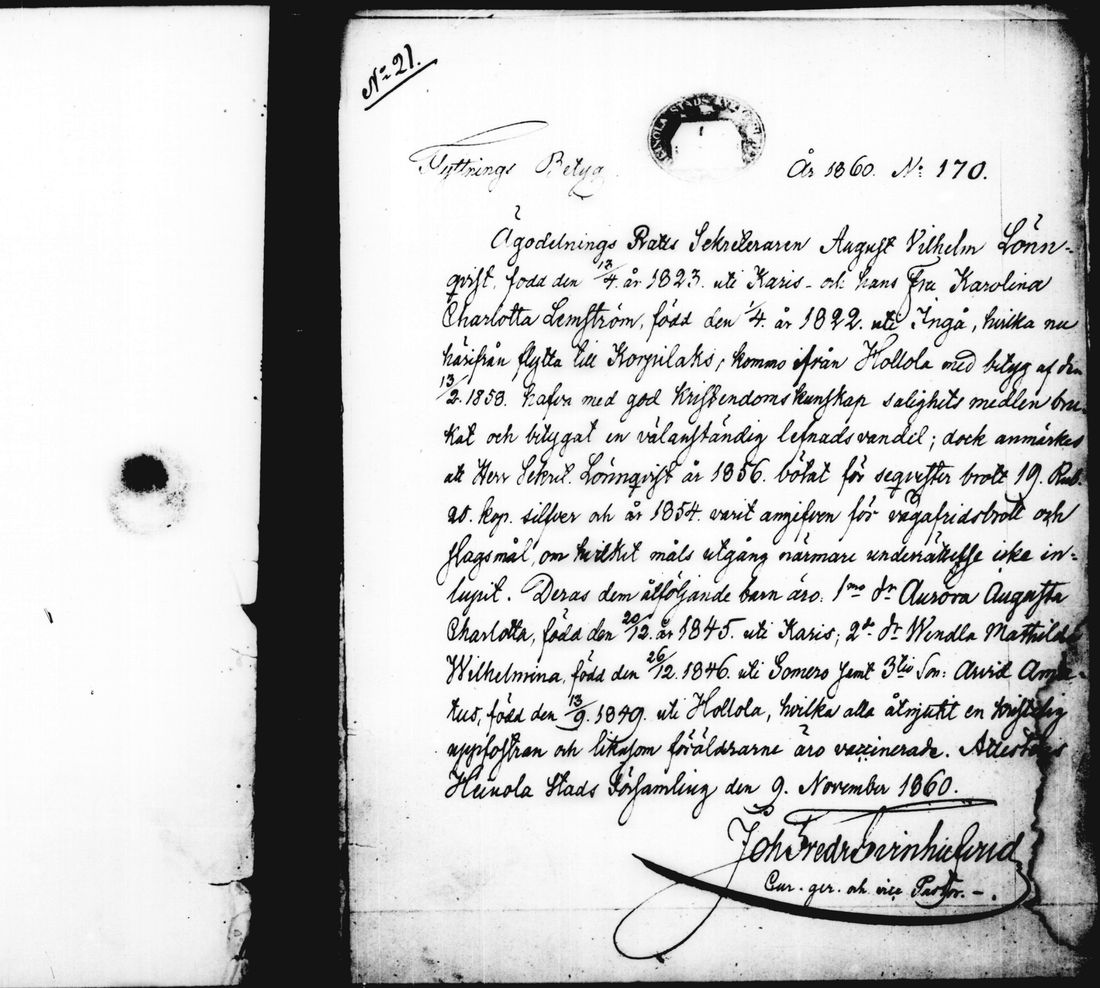 No 21.
Flyttnings Betyg. År 1860. No 170.
Ägodelnings Rätts Sekreteraren August Vilhelm Lönn-
qvist, född den 13/4. år 1823. uti Karis - och hans fru Karolina
Charlotta Lemström, född den 1/4. år 1822. uti Ingå, hvilka nu
härifrån flytta till Korpilaks, kommo ifrån Hollola med betyg af den
13/2. 1853. hafva med god kristendomskunskap salighets medlen bru-
kat och betygat en välanständig lefnadsvandel; dock anmärkes
att Herr Sekret. Lönnqvist år 1856. bötat för seqvester brott 19. Rub.
20. kop. silfver och år 1854. varit angifven för vägafridsbrott och
slagsmål, om hvilket måls utgång närmare underrättelse icke in-
lupit. Deras dem åtföljande barn äro: 1mo dr Aurora Augusta
Charlotta, född den 20/12. år 1845. uti Karis; 2do dr Wendla Mathilda
Wilhelmina, född den 26/12. 1846. uti Somero samt 3tio Son: Arvid Ama-
tus, född den 13/9. 1849. uti Hollola, hvilka alla åtnjutit en kristelig
uppfostran och liksom föräldrarne äro vaccinerade. Attesteras
Heinola Stads Församling den 9. November 1860.
Joh Fredr
Cur. ger. och vice Pastor. -